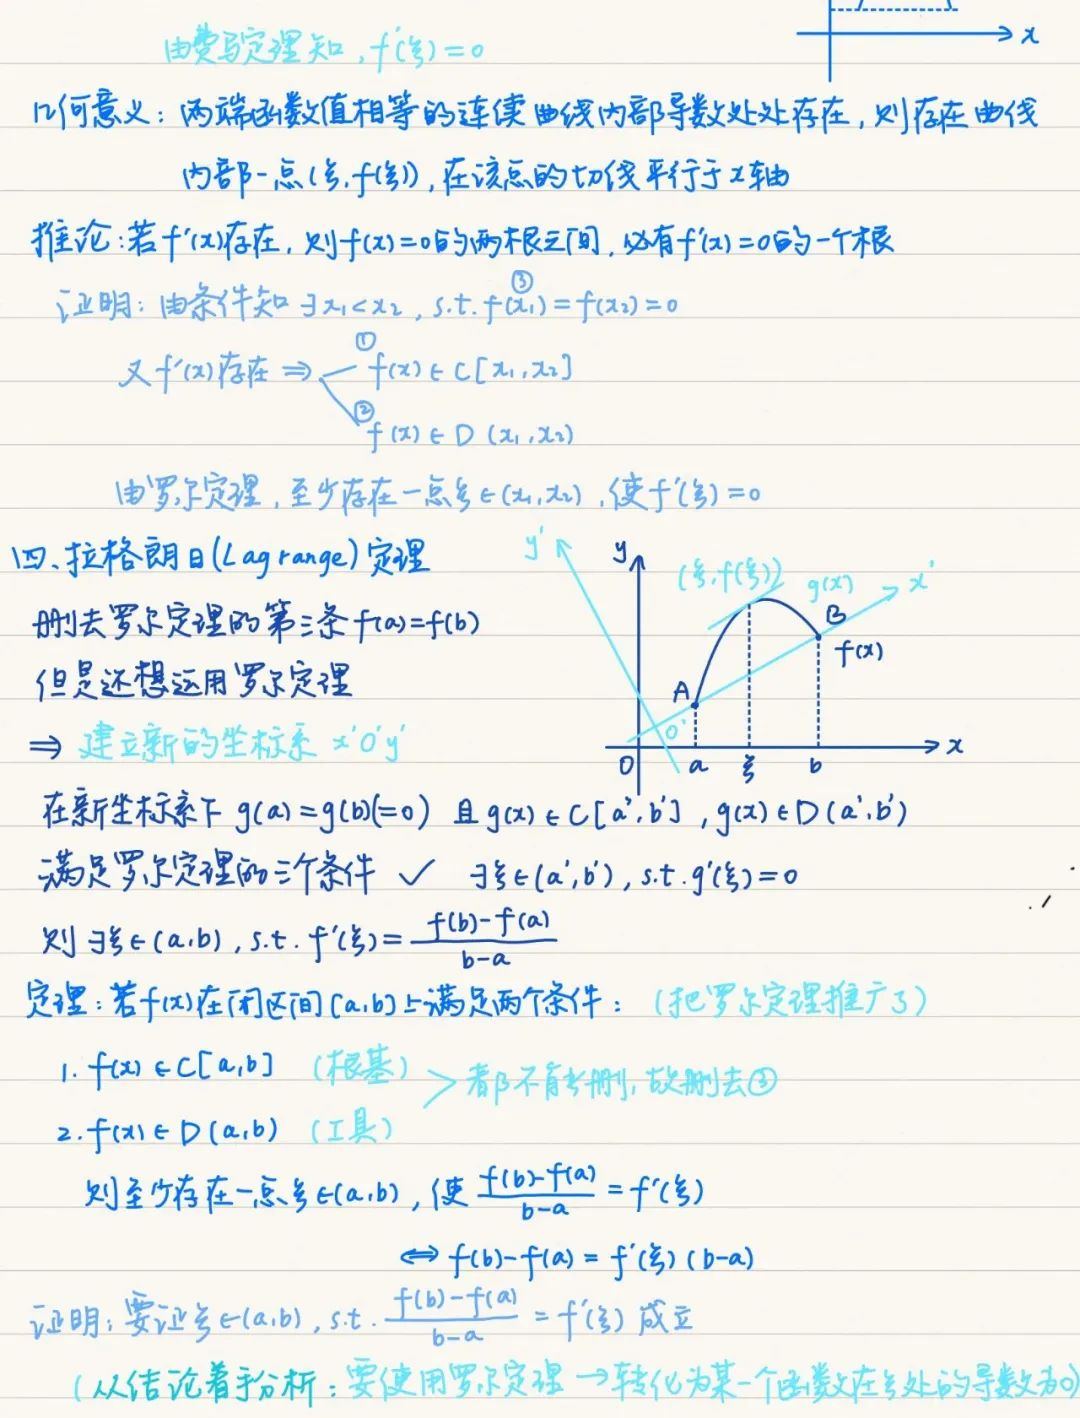 x
由费马定理知,f'(ξ)=0
几何意义:两端函数值相等的连续曲线内部导数处处存在,则存在曲线
内部一点(ξ,f(ξ)),在该点的切线平行于x轴
推论:若f'(x)存在,则f(x)=0的两根之间,必有f'(x)=0的一个根
证明:由条件知 ∃x₁<x₂, s.t. ③ f(x₁)=f(x₂)=0
又f'(x)存在 ⇒ ① f(x)∈C[x₁,x₂]
② f(x)∈D(x₁,x₂)
由罗尔定理,至少存在一点ξ∈(x₁,x₂),使f'(ξ)=0
四、拉格朗日(Lagrange)定理
删去罗尔定理的第三条f(a)=f(b)
但是还想运用罗尔定理
⇒ 建立新的坐标系 x'O'y'
y'
y
(ξ,f(ξ))
g(x)
x'
B
f(x)
A
O'
O a ξ b x
在新坐标系下 g(a)=g(b)(=0) 且g(x)∈C[a',b'],g(x)∈D(a',b')
满足罗尔定理的三个条件 ✓ ∃ξ∈(a',b'), s.t. g'(ξ)=0
则∃ξ∈(a,b), s.t. f'(ξ)=\frac{f(b)-f(a)}{b-a}
定理:若f(x)在闭区间[a,b]上满足两个条件: (把罗尔定理推广了)
1. f(x)∈C[a,b] (根基)
> 都不能删,故删去③
2. f(x)∈D(a,b) (工具)
则至少存在一点ξ∈(a,b),使 \frac{f(b)-f(a)}{b-a}=f'(ξ)
⇔ f(b)-f(a)=f'(ξ)(b-a)
证明:要证ξ∈(a,b), s.t. \frac{f(b)-f(a)}{b-a}=f'(ξ) 成立
(从结论着手分析:要使用罗尔定理→转化为某一个函数在ξ处的导数为0)